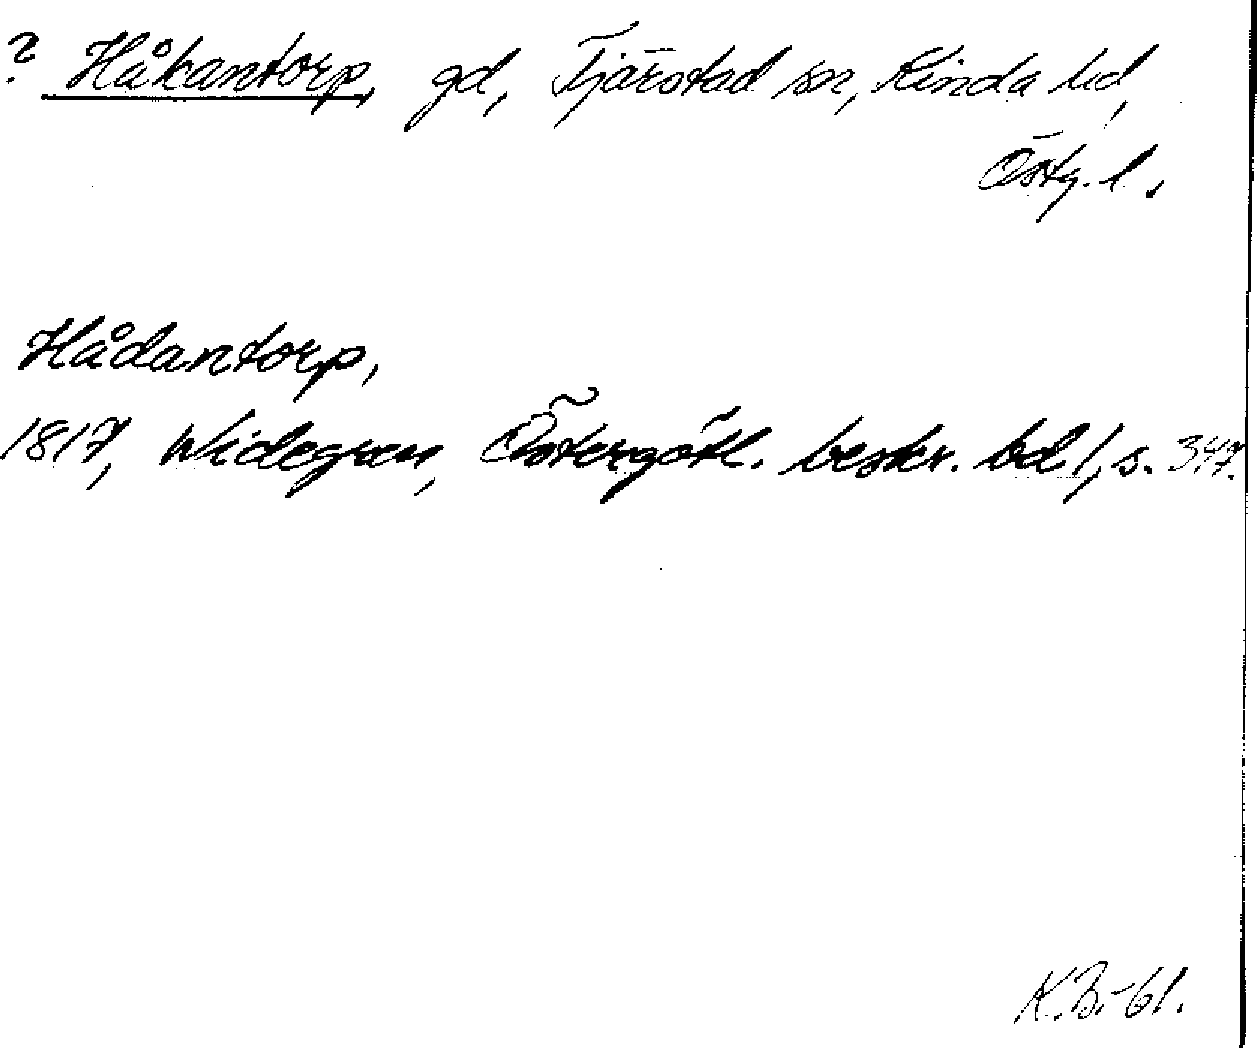 ? Håkantorp, gd, Tjärstad sn, Kinda hd,
Östg. l.
Hådantorp,
1817, Widegren, Östergötl. beskr. bd 1, s. 347.
K.B. -61.